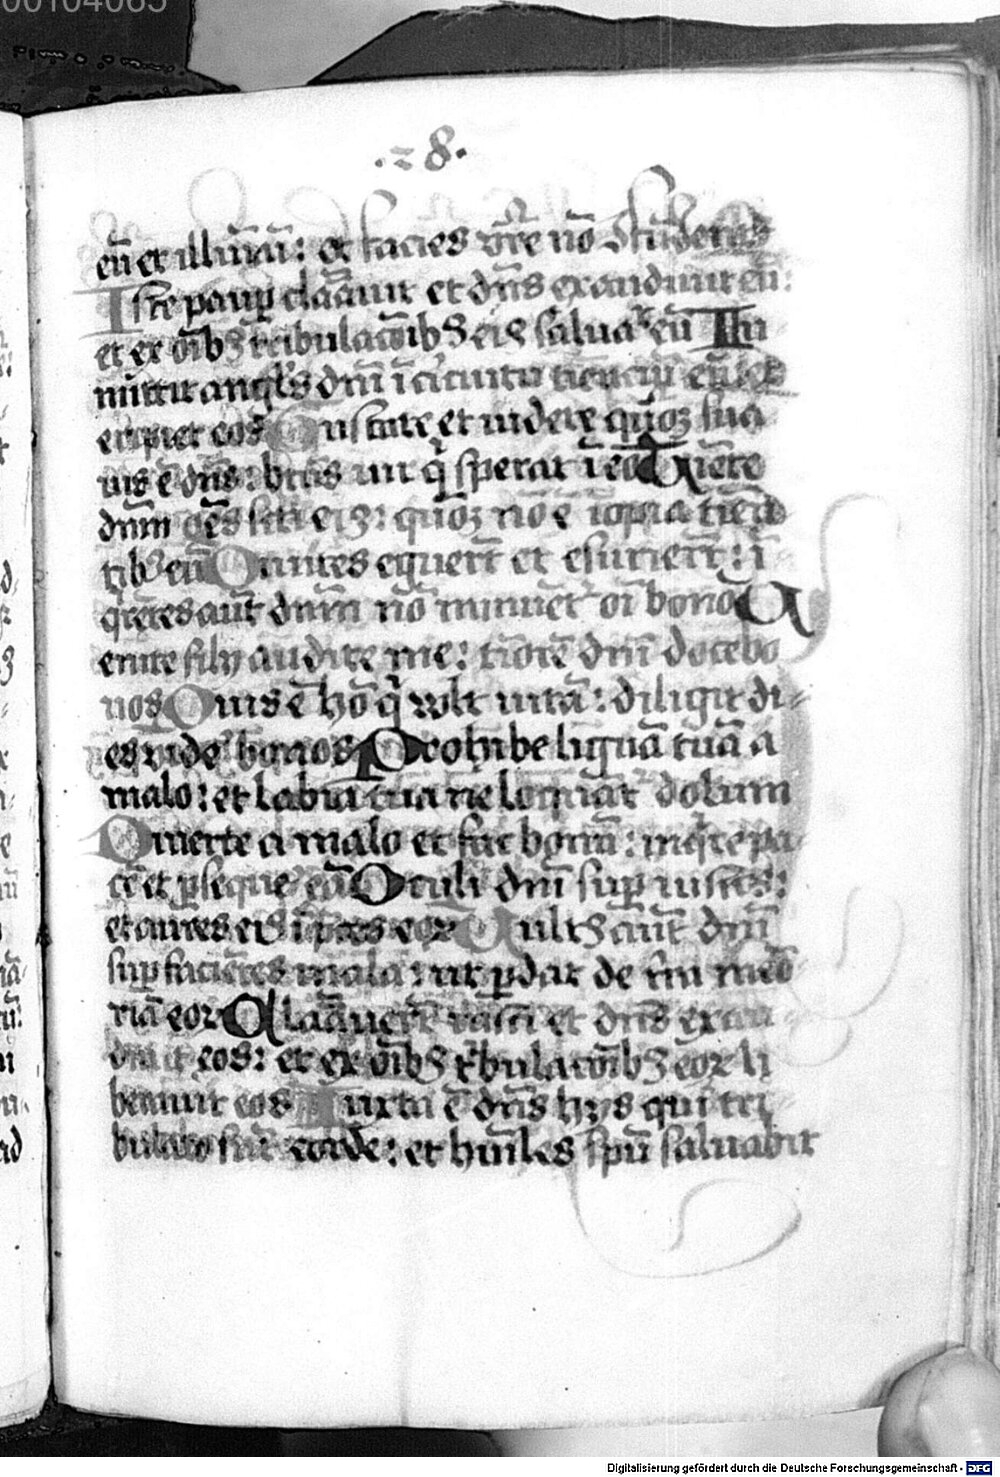 00104065
·28·
eū et illūīaī: et facies vr̄e nō ꝯfūdent̄
Iste paup̲ clāauit et dn̄s exaudiuit eū:
et ex oīb9 tribulac̄oib9 ei9 saluaᵗ eū Im̄
mittit angl̄s dn̄i ī circuitu timēciū eū: et
eripiet eos Gustate et uidete qm̄ sua
uis ē dn̄s: bt̄us uir q̇ sperat ī eo Timete
dn̄m oēs sc̄i ei9: qm̄ nō ē īopia timē
tib9 eū Diuites eguerūt et esurierūt: ī
q̇rētes aūt dn̄m nō minuēt oī bono Ue
nite filij audite me: timorē dn̄i docebo
uos Quis ē hō q̇ vult uitā: diligit di-
es videᵉ bonos Prohibe liguā tuā a
malo: et labia tua ne loquāt dolum
Diuerte a malo et fac bonū: inq̇re pa-
cē et ꝑsequeᵉ eā Oculi dn̄i sup̲ iustos:
et aures ei9 ī p̄ces eoꝝ Uult9 aūt dn̄i
sup̲ faciētes mala: ut ꝑdat de tr̄a memō
riā eoꝝ Clamauerūt iusti et dn̄s exau
diuit eos: et ex oīb9 tribulac̄oib9 eoꝝ li
berauit eos Iuxta ē dn̄s hijs qui tri-
bulato sūt corde: et hūiles spū saluabit
Digitalisierung gefördert durch die Deutsche Forschungsgemeinschaft - DFG